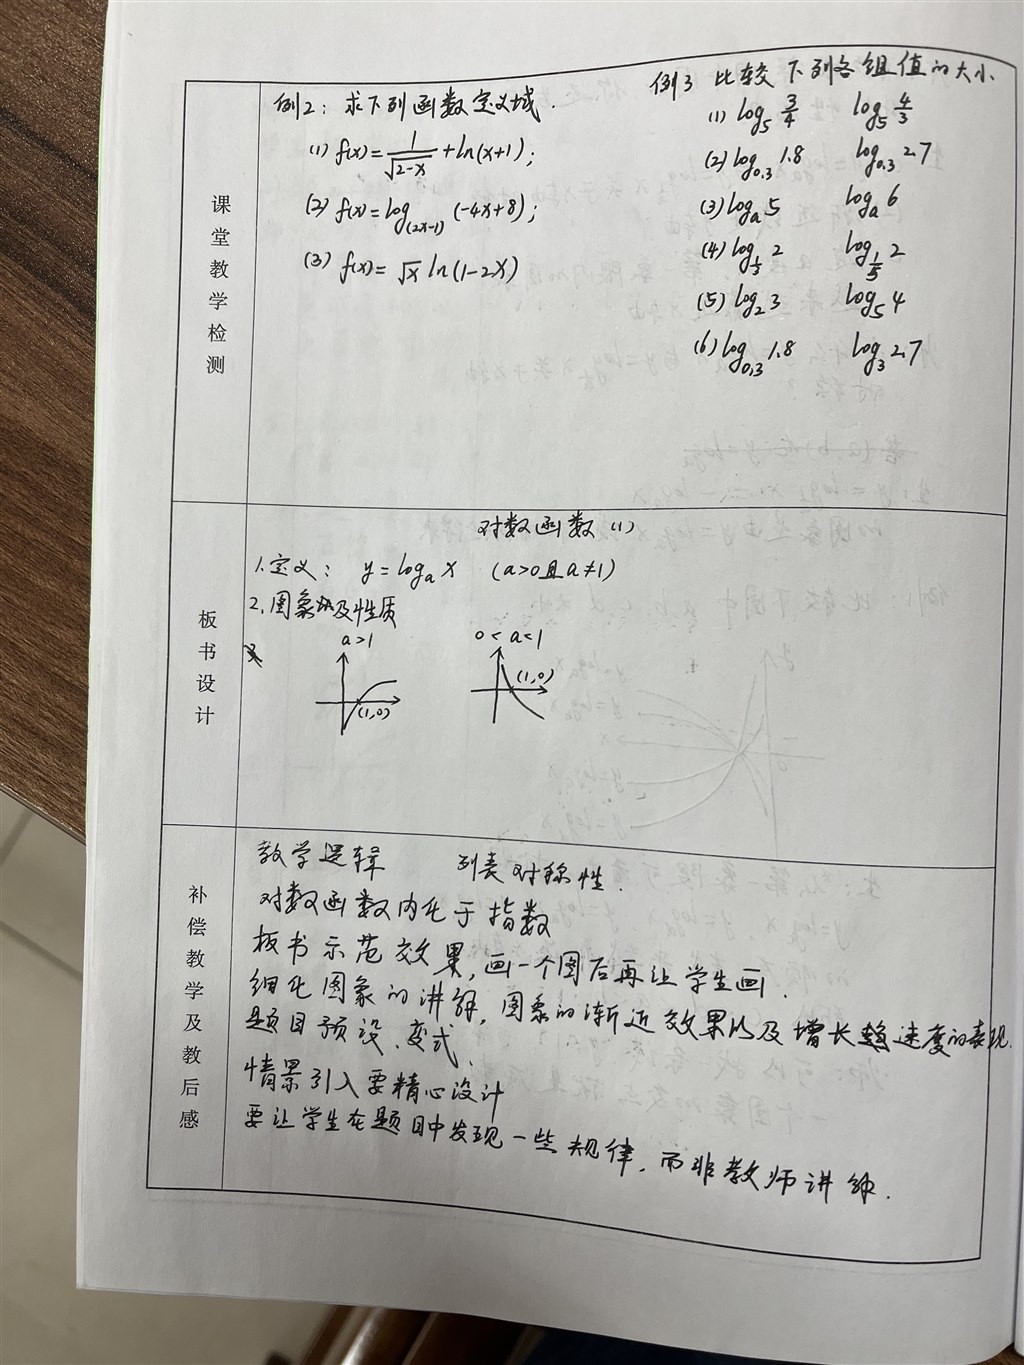 课堂教学检测
例2：求下列函数定义域.
(1) f(x)=1/√(2-x)+ln(x+1);
(2) f(x)=log(2x-1)(-4x+8);
(3) f(x)=√x ln(1-2x)
例3 比较下列各组值的大小
(1) log₅ 3/4 log₅ 4/3
(2) log₀.₃ 1.8 log₀.₃ 2.7
(3) logₐ 5 logₐ 6
(4) log₁/₃ 2 log₁/₅ 2
(5) log₂ 3 log₅ 4
(6) log₀.₃ 1.8 log₃ 2.7
板书设计
对数函数(1)
1.定义： y=logₐx (a>0且a≠1)
2.图象及性质
a>1 0<a<1
(1,0) (1,0)
补偿教学及教后感
教学逻辑 列表对称性.
对数函数内化于指数
板书示范效果，画一个图后再让学生画.
细化图象的讲解，图象的渐近效果以及增长速度的表现.
题目预设、变式.
情景引入要精心设计
要让学生在题目中发现一些规律，而非教师讲解.